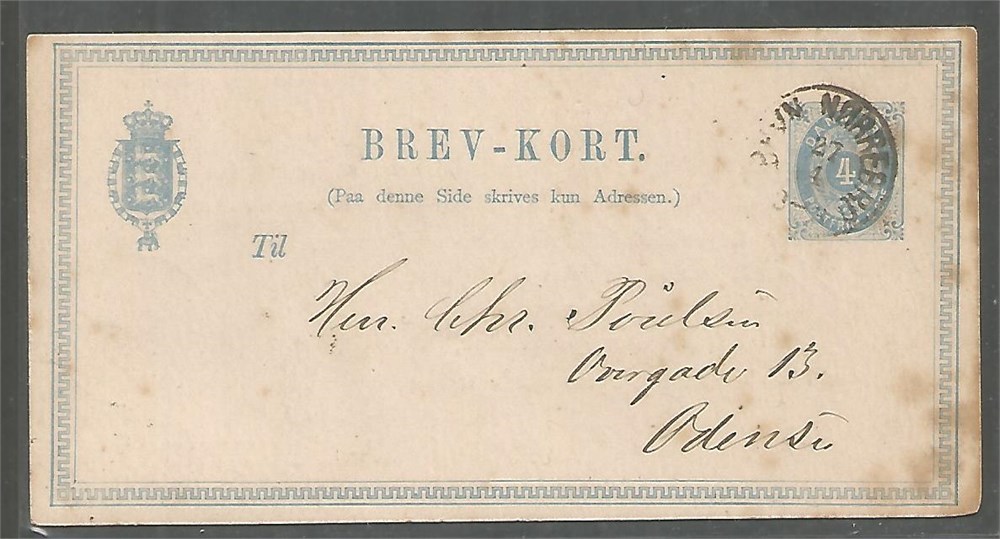 BREV-KORT.
(Paa denne Side skrives kun Adressen.)
NØRREBRO
27
4
Til
Herr. Chr. Poulsen
Overgade 13.
Odense